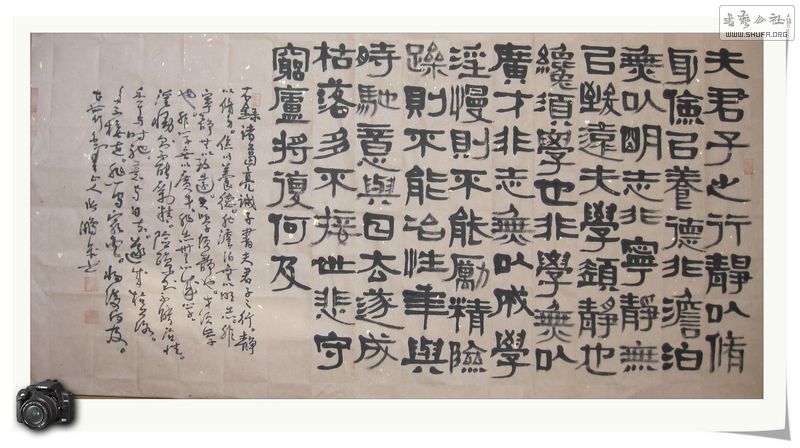 书艺公社
WWW.SHUFA.ORG
夫君子之行靜以脩
身儉以養德非澹泊
無以明志非寧靜無
以致遠夫學須靜也
纔須學也非學無以
廣才非志無以成學
淫慢則不能勵精險
躁則不能冶性年與
時馳意與日去遂成
枯落多不接世悲守
窮廬將復何及
諸葛亮誡子書夫君子之行。靜
以修身。儉以養德。非澹泊無以明志。非
寧靜無以致遠。夫學須靜也。才須學
也。非學無以廣才。非志無以成學。
淫慢則不能勵精。險躁則不能冶性。
年與時馳。意與日去。遂成枯落。
多不接世。悲守窮廬。將復何及。